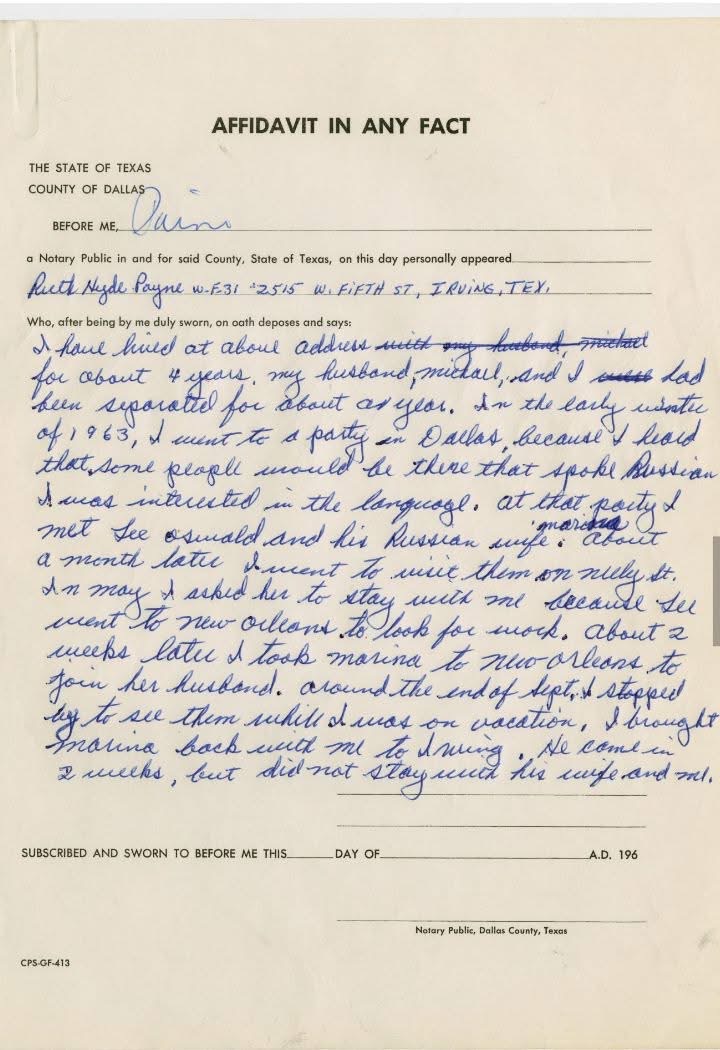 AFFIDAVIT IN ANY FACT
THE STATE OF TEXAS
COUNTY OF DALLAS
BEFORE ME, Paine
a Notary Public in and for said County, State of Texas, on this day personally appeared
Ruth Hyde Payne W-F-31 #2515 W. FIFTH ST, IRVING, TEX.
Who, after being by me duly sworn, on oath deposes and says:
I have lived at above address with my husband, michael
for about 4 years. my husband, michael, and I were had
been separated for about a year. In the early winter
of 1963, I went to a party in Dallas because I heard
that some people would be there that spoke Russian
I was interested in the language. at that party I
met Lee oswald and his Russian wife marina. About
a month later I went to visit them on neely St.
In may I asked her to stay with me because Lee
went to new orleans to look for work. about 2
weeks later I took marina to new orleans to
join her husband. around the end of Sept. I stopped
by to see them while I was on vacation, I brought
marina back with me to Irving. He come in
2 weeks, but did not stay with his wife and me.
SUBSCRIBED AND SWORN TO BEFORE ME THIS DAY OF A.D. 196
Notary Public, Dallas County, Texas
CPS-GF-413